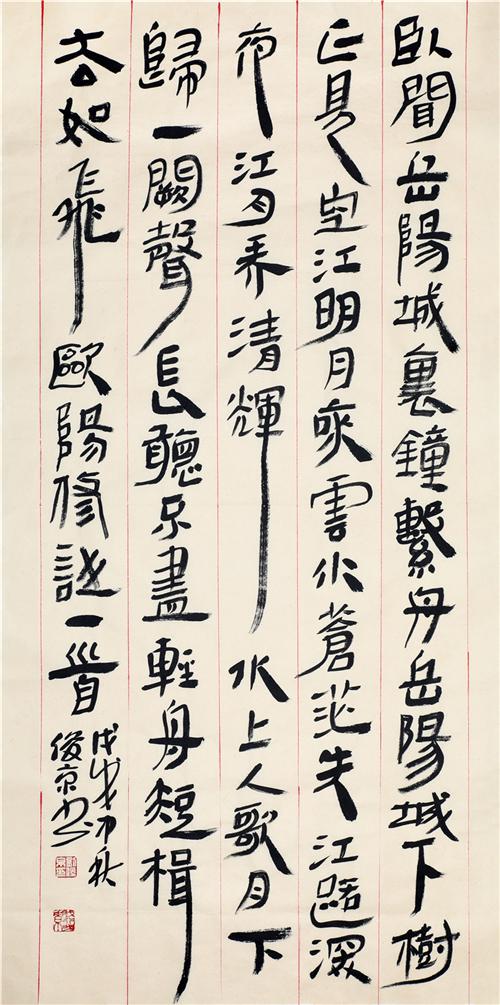 臥聞岳陽城裏鐘繫舟岳陽城下樹
正見空江明月來雲水蒼茫失江路深
夜江月弄清輝水上人歌月下
歸一闋聲長聽不盡輕舟短楫
去如飛歐陽修詩一首
戊戌初秋
俊京書